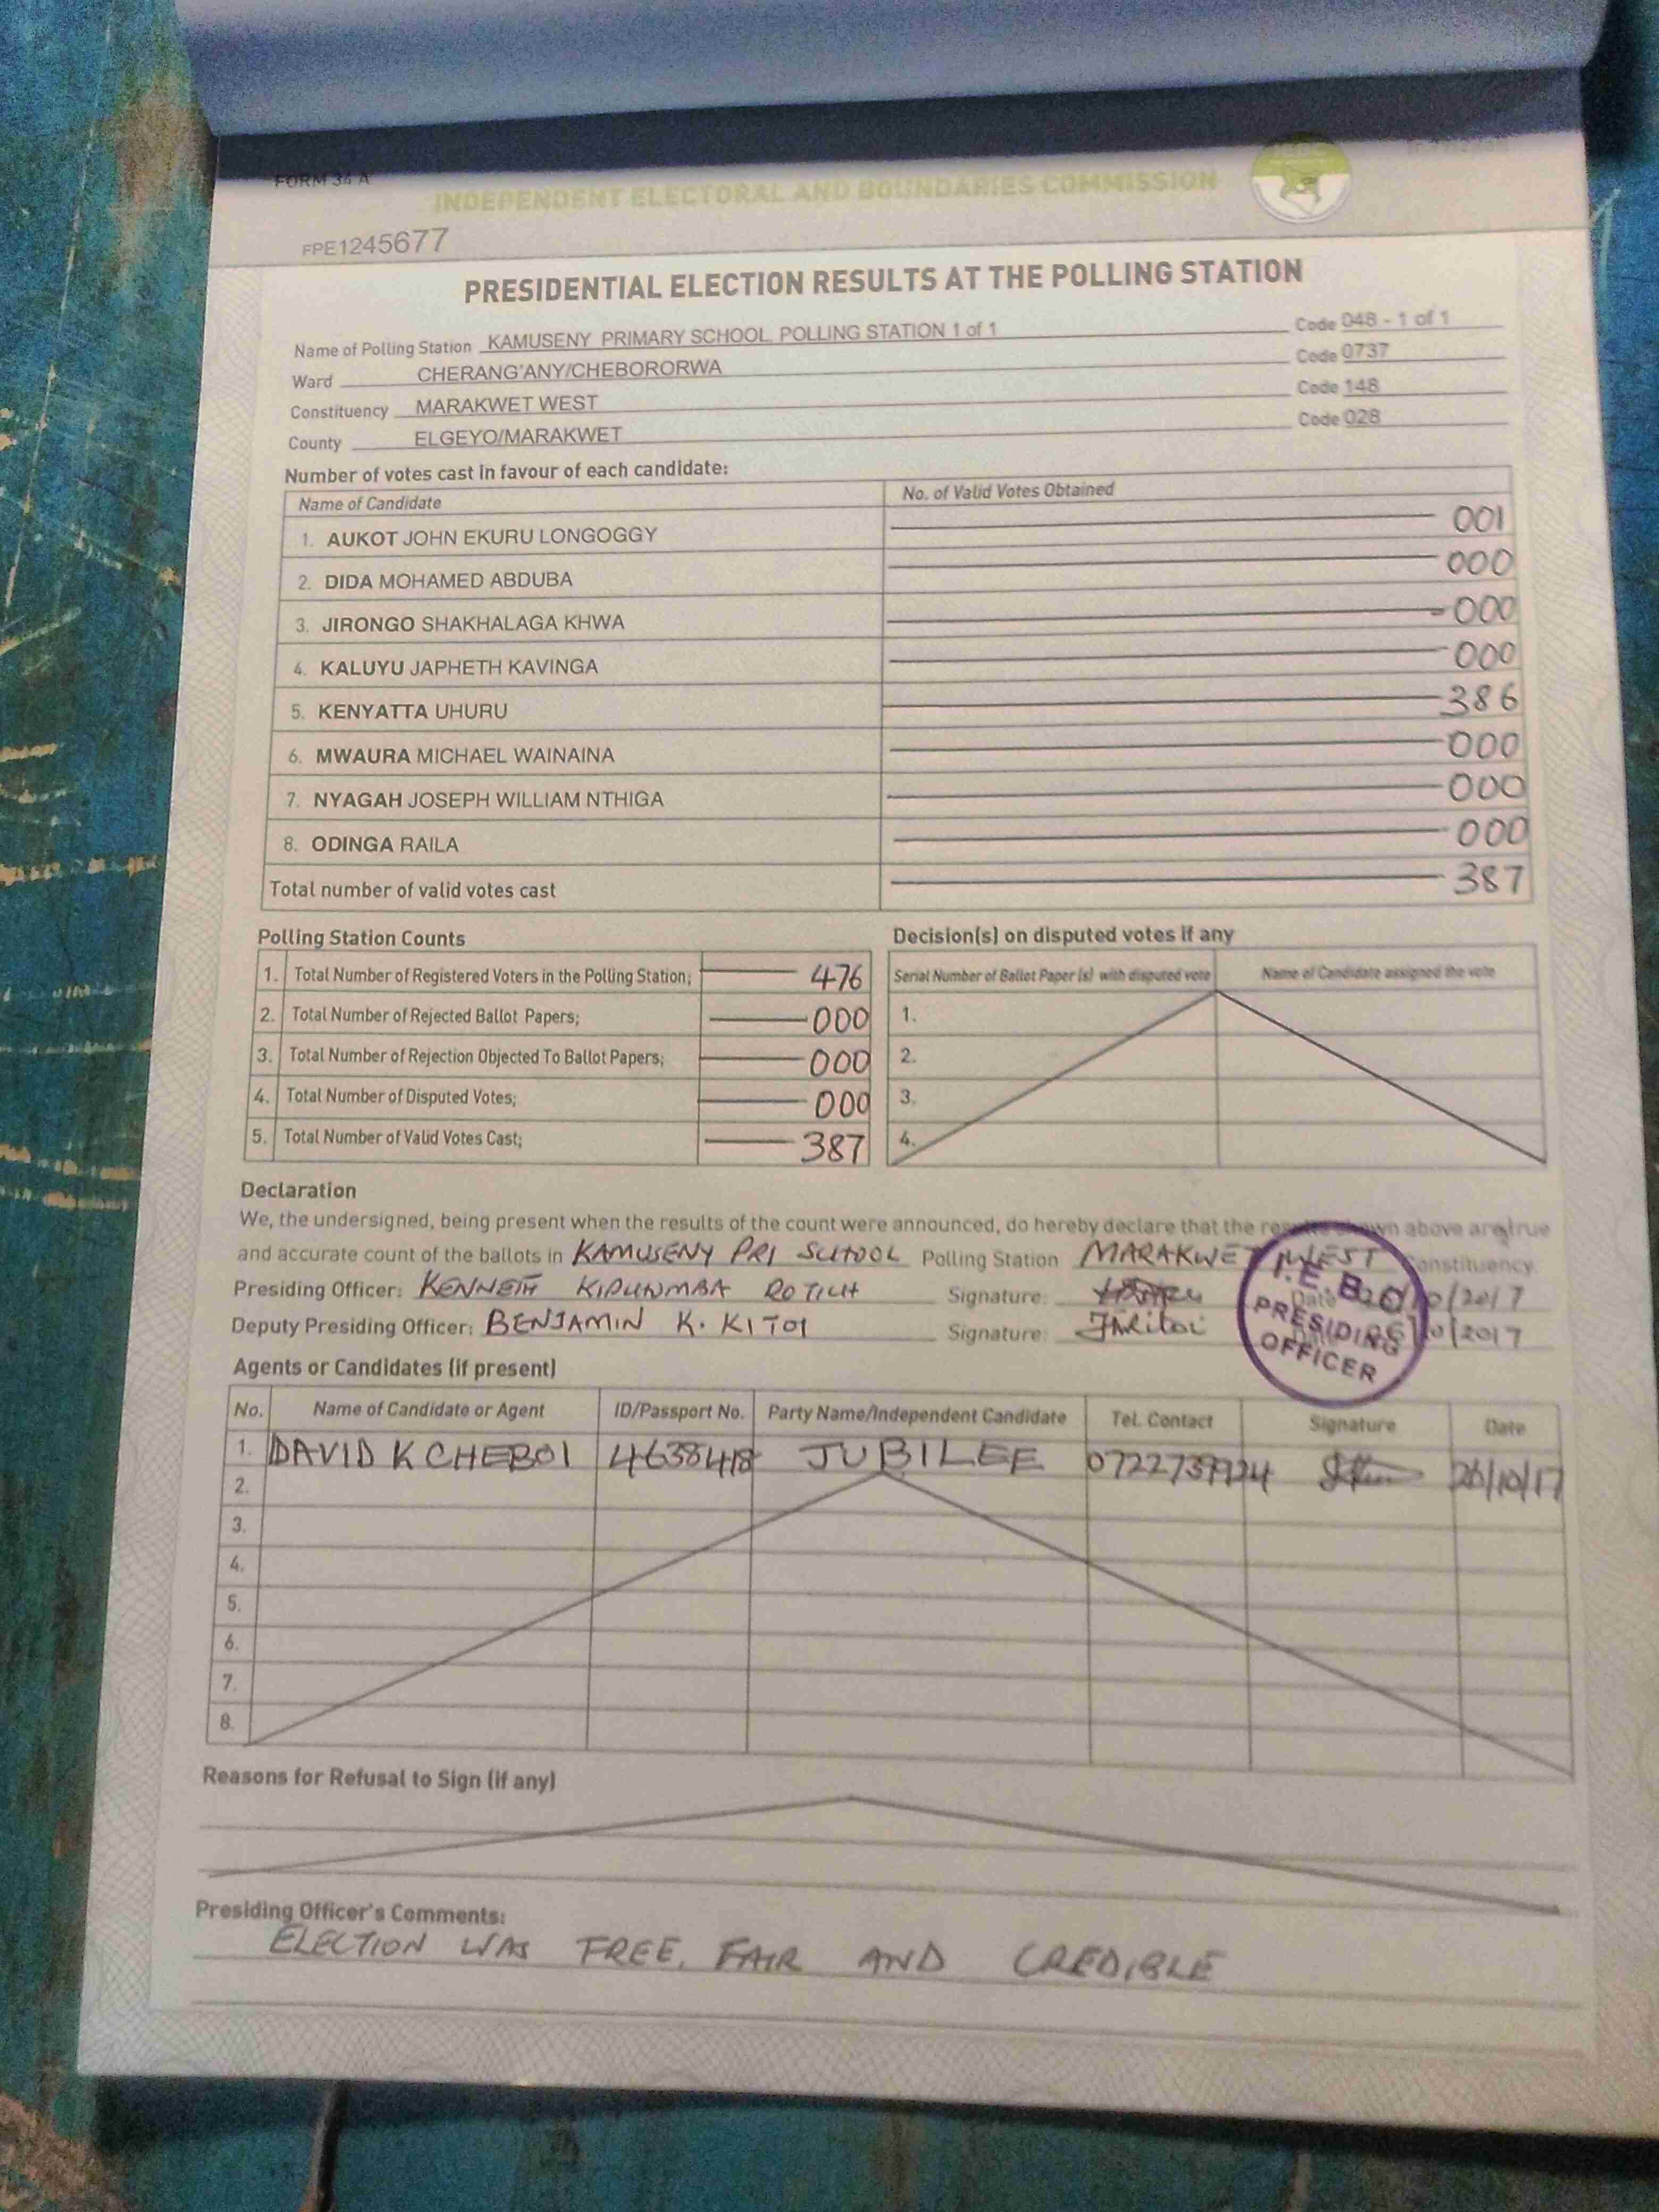 FORM 34 A
INDEPENDENT ELECTORAL AND BOUNDARIES COMMISSION
FPE1245677
PRESIDENTIAL ELECTION RESULTS AT THE POLLING STATION
Name of Polling Station KAMUSENY PRIMARY SCHOOL POLLING STATION 1 of 1 Code 048 - 1 of 1
Ward CHERANG'ANY/CHEBORORWA Code 0737
Constituency MARAKWET WEST Code 148
County ELGEYO/MARAKWET Code 028
Number of votes cast in favour of each candidate:
Name of Candidate No. of Valid Votes Obtained
1. AUKOT JOHN EKURU LONGOGGY 001
2. DIDA MOHAMED ABDUBA 000
3. JIRONGO SHAKHALAGA KHWA 000
4. KALUYU JAPHETH KAVINGA 000
5. KENYATTA UHURU 386
6. MWAURA MICHAEL WAINAINA 000
7. NYAGAH JOSEPH WILLIAM NTHIGA 000
8. ODINGA RAILA 000
Total number of valid votes cast 387
Polling Station Counts
1. Total Number of Registered Voters in the Polling Station; 476
2. Total Number of Rejected Ballot Papers; 000
3. Total Number of Rejection Objected To Ballot Papers; 000
4. Total Number of Disputed Votes; 000
5. Total Number of Valid Votes Cast; 387
Decision(s) on disputed votes if any
Serial Number of Ballot Paper (s) with disputed vote Name of Candidate assigned the vote
1.
2.
3.
4.
Declaration
We, the undersigned, being present when the results of the count were announced, do hereby declare that the results shown above are true
and accurate count of the ballots in KAMUSENY PRI SCHOOL Polling Station MARAKWET WEST Constituency.
Presiding Officer: KENNETH ROTICH Signature: Date 26/10/2017
Deputy Presiding Officer: BENJAMIN K. KITOI Signature: Date 26/10/2017
I.E.B.C
PRESIDING
OFFICER
Agents or Candidates (if present)
No. Name of Candidate or Agent ID/Passport No. Party Name/Independent Candidate Tel. Contact Signature Date
1. DAVID K CHEBOI JUBILEE 26/10/17
2.
3.
4.
5.
6.
7.
8.
Reasons for Refusal to Sign (if any)
Presiding Officer's Comments:
ELECTION WAS FREE, FAIR AND CREDIBLE